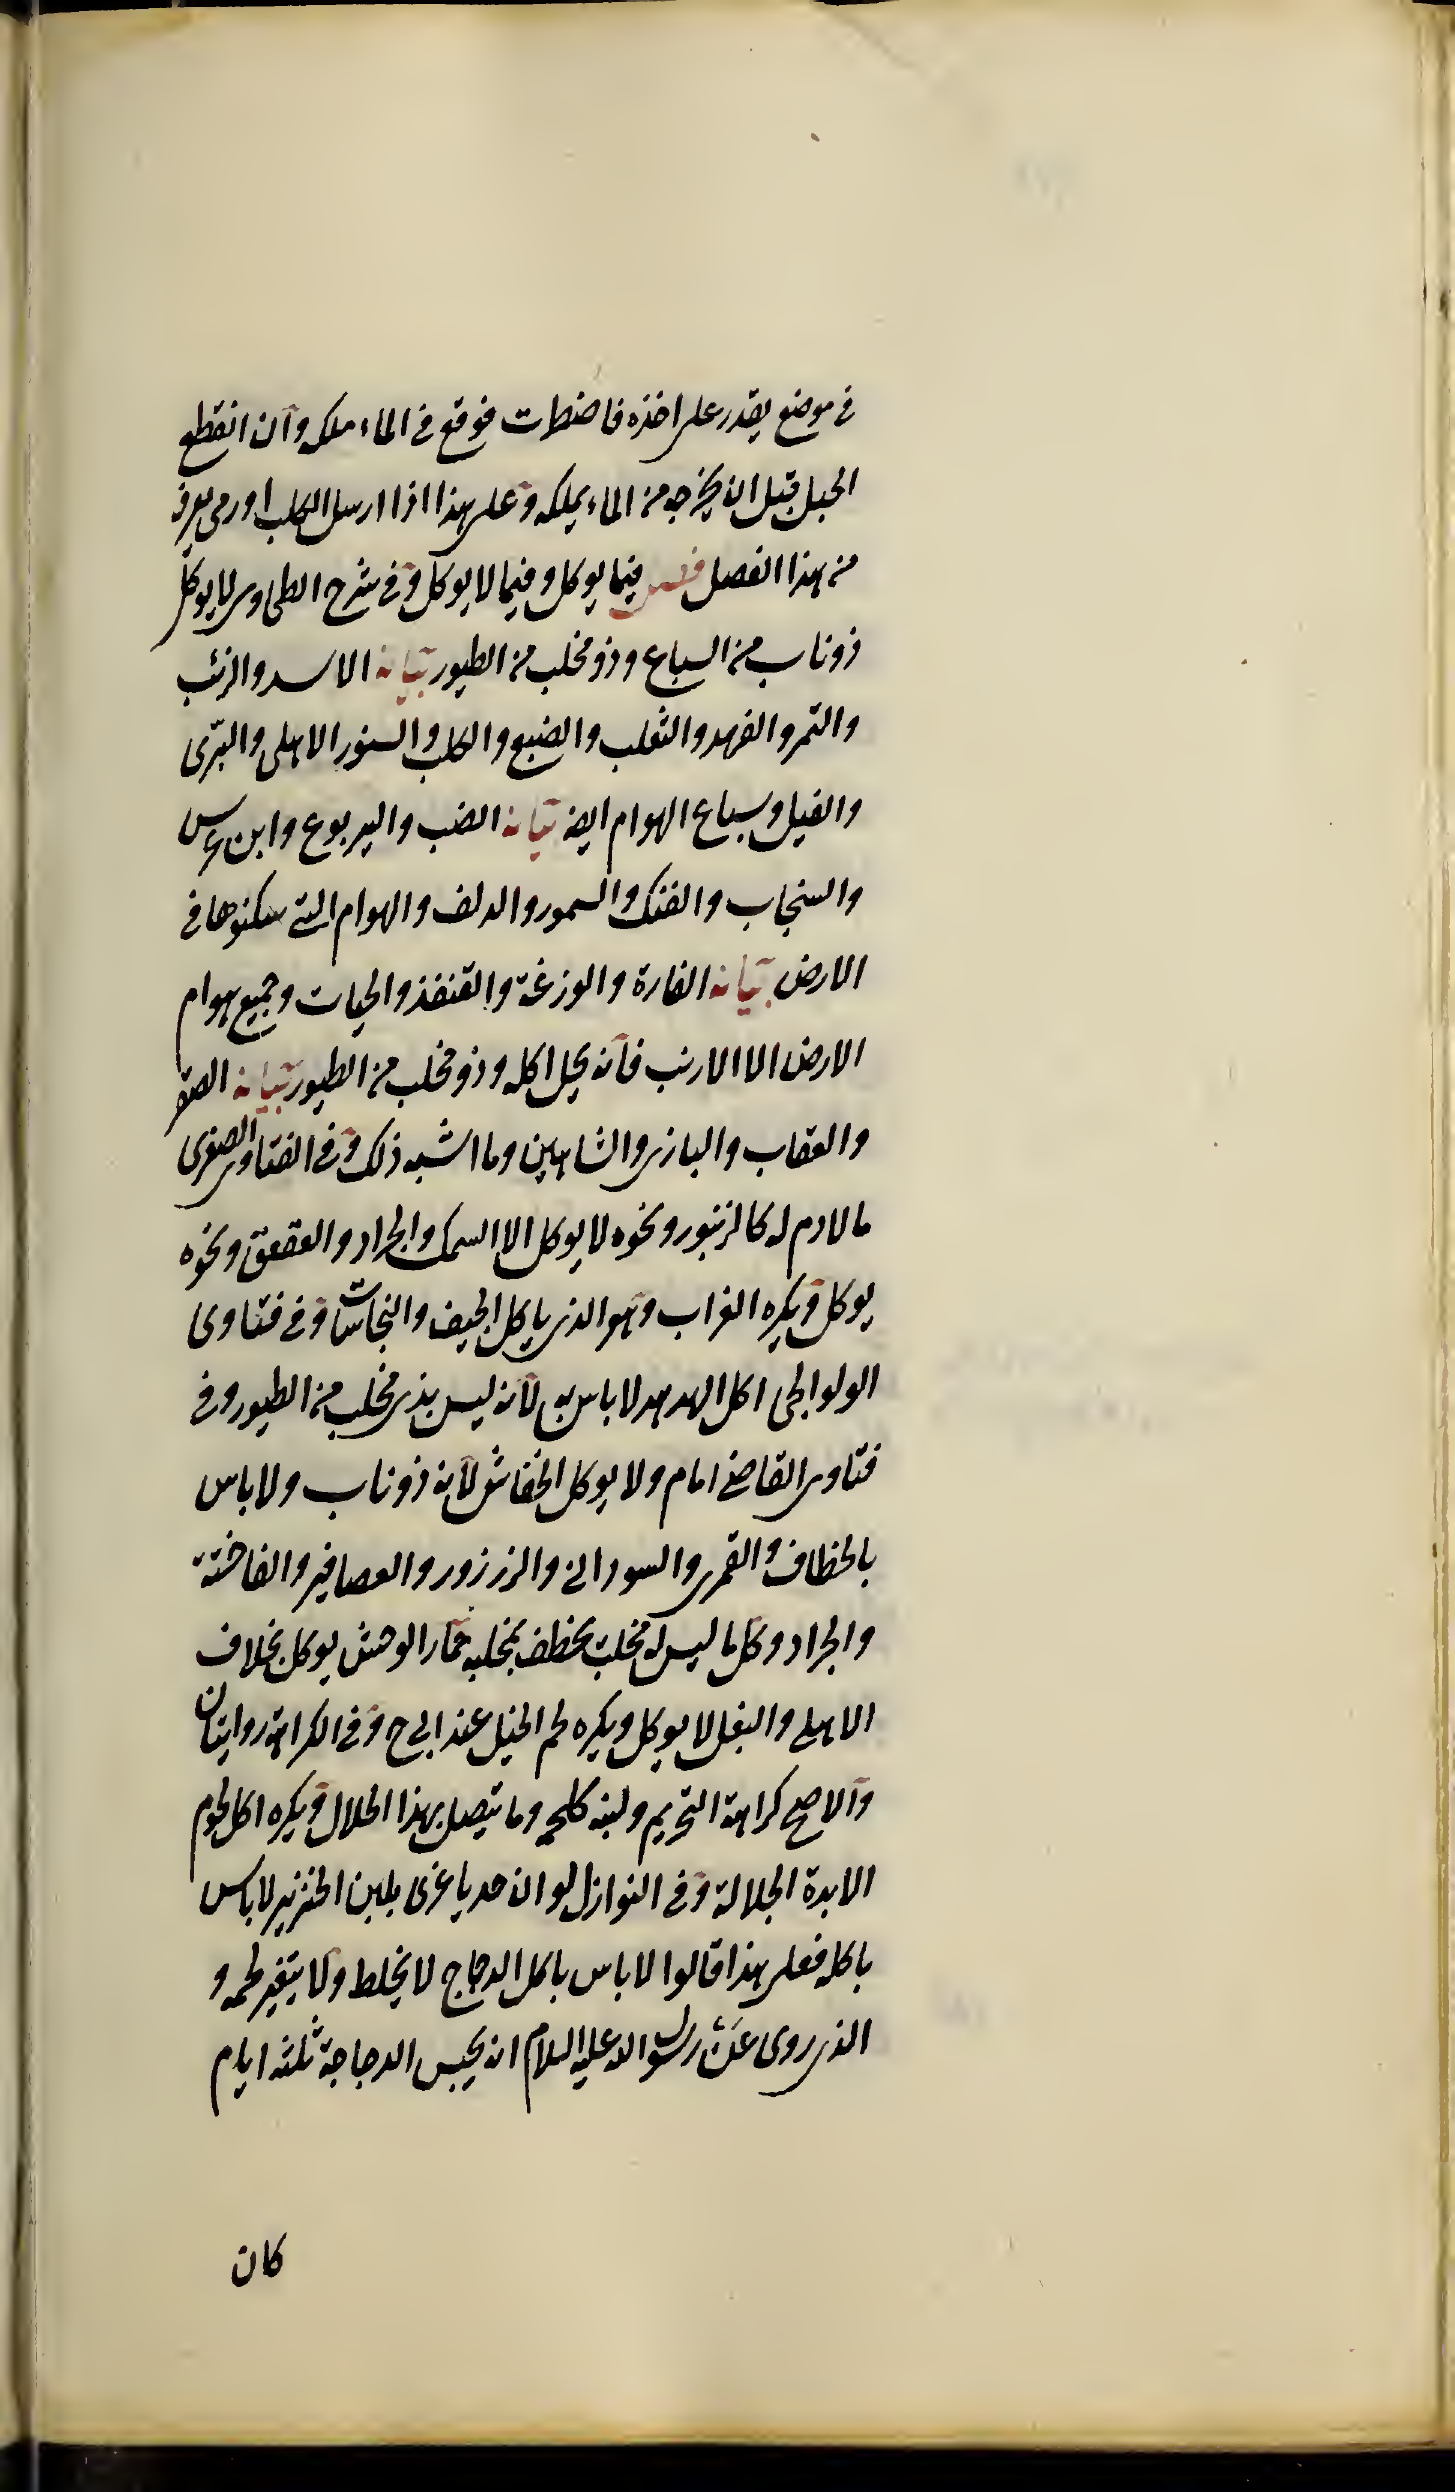 في موضع يقدر على اخذه فاضطرب فوقع في الماء ملكه وان انقطع
الحبل قبل ان يخرجه من الماء يملكه وعلى هذا اذا ارسل الكلب او رمى يعرف
من هذا الفصل فصل فيما يوكل وفيما لا يوكل وفي شرح الطحاوى لا يوكل
ذو ناب من السباع وذو مخلب من الطيور بيانه الاسد والذئب
والنمر والفهد والثعلب والضبع والكلب والسنور الاهلى والبرّى
والفيل وسباع الهوام ايضا بيانه الضب واليربوع وابن عرس
والسنجاب والفنك والسمور والدلف والهوام التى سكنوها في
الارض بيانه الفارة والوزغة والقنفذ والحيات وجميع هوام
الارض الا الارنب فانه يحل اكله وذو مخلب من الطيور بيانه الصقر
والعقاب والبازى والشاهين وما اشبه ذلك وفي الفتاوى الصغرى
ما لا دم له كالزنبور ونحوه لا يوكل الا السمك والجراد والعقعق ونحوه
يوكل ويكره الغراب وهو الذى ياكل الجيف والنجاسات وفي فتاوى
الولوالجى اكل الهدهد لا باس به لانه ليس بذى مخلب من الطيور وفي
فتاوى القاضى امام ولا يوكل الخفاش لانه ذو ناب ولا باس
بالخطاف والقمرى والسودانى والزرزور والعصافير والفاختة
والجراد وكل ما ليس له مخلب يخطف بمخلبه حمار الوحش يوكل بخلاف
الاهلى والبغل لا يوكل ويكره لحم الخيل عند ابى ح وفي الكراهة روايتان
والاصح كراهة التحريم ولبنه كلحمه وما يتصل بهذا الحلال ويكره اكل لحوم
الابدة الجلالة وفي النوازل لو ان جديا غذى بلبن الخنزير لا باس
باكله فعلى هذا قالوا لا باس باكل الدجاج لا يخلط ولا يتغير لحمه و
الذى روى عن رسول الله عليه السلام انه يحبس الدجاجة ثلثة ايام
كان